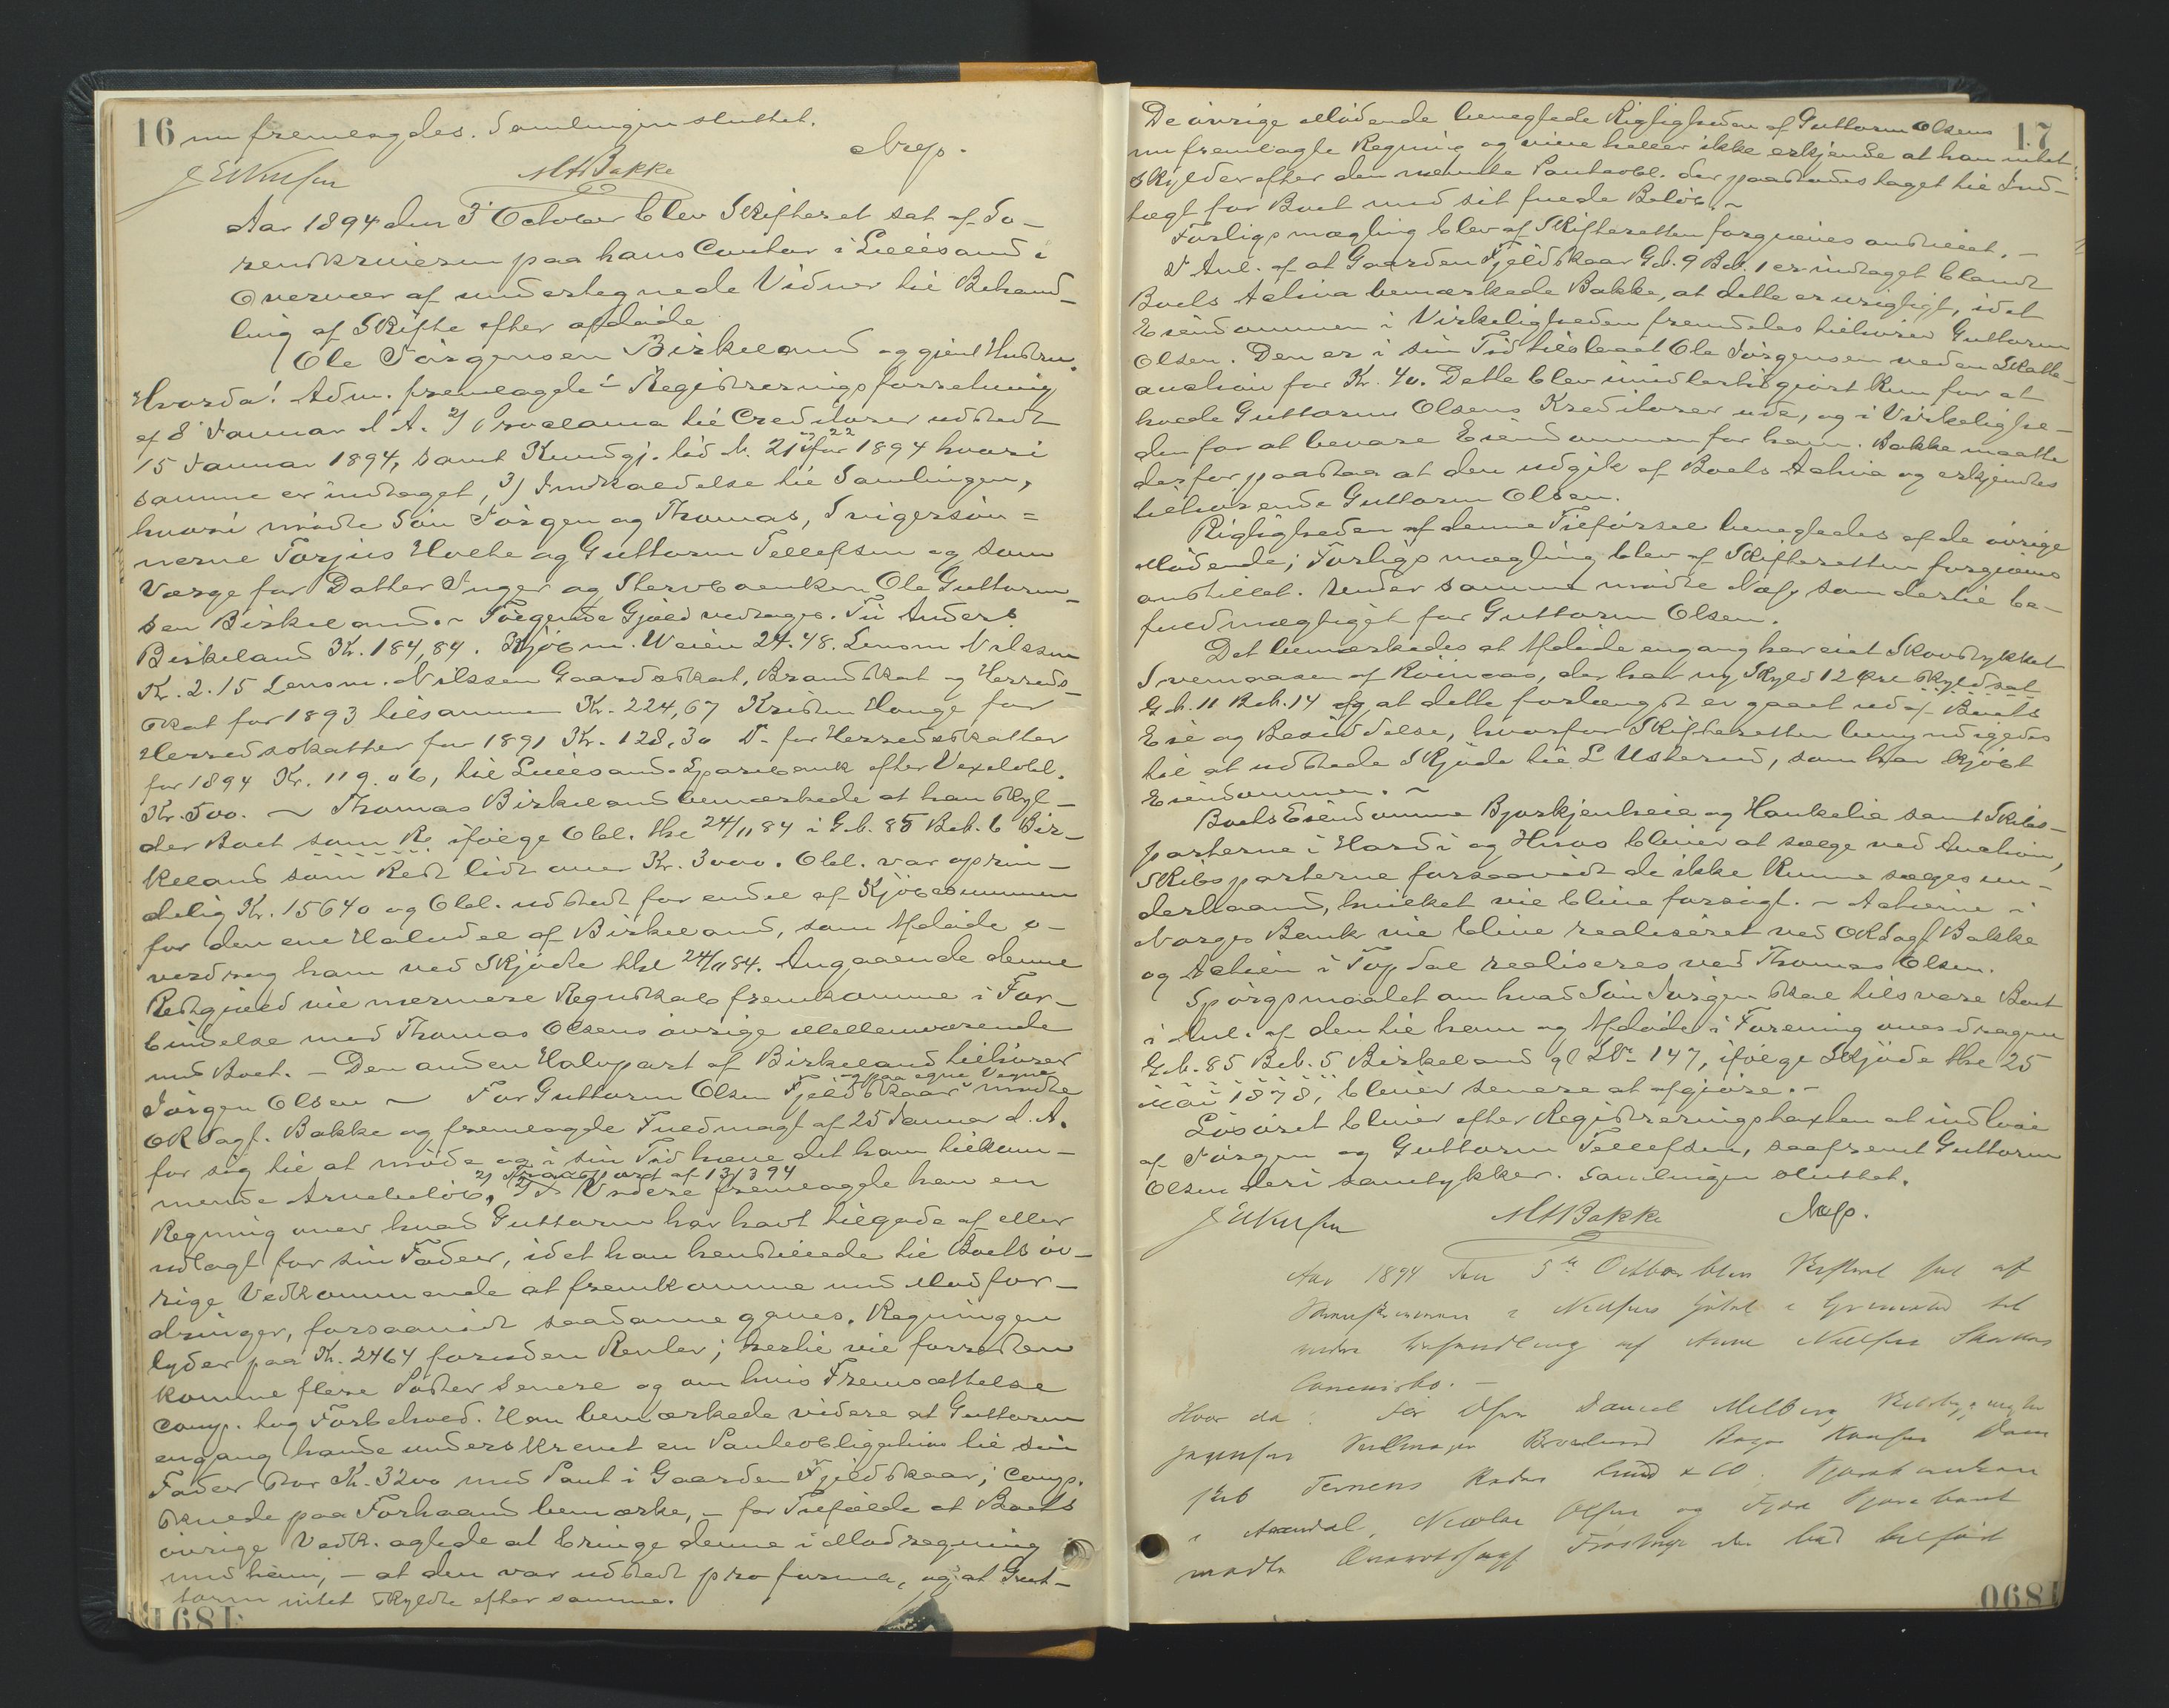 16 nu fremlagdes. Samlingen sluttet.
MABakke
Aar 1894 den 3' October blev Skifteret sat af So-
renskriveren paa hans Contor i Lillesand i
Overvær af undertegnede Vidner til Behand-
ling af Skifte efter afdøde
Ole Jørgensen Birkeland og gjenl. Hustru.
Hvorda! Adm. fremlagde 1 Registreringsforretning
af 8' Januar d. A. 2) Proclama til Creditorer udstedt
15 Januar 1894, samt Kundgj. tid N. 21 & 22 for 1894 hvori
samme er indtaget, 3) Indkaldelse til Samlingen,
hvori mødte Søn Jørgen og Thomas, Svigersøn=
nerne Torjus Holte og Guttorm Tellefsen og som
Værge for Datter Inger og Stervboenken Ole Guttorm-
sen Birkeland. ~ Følgende Gjæld vedtages. Til Anders
Birkeland Kr. 184,84. Kjøbm. Weien 24.48. Lensm Nilssen
Kr. 2.15 Lensm. Nilssen Gaardskat, Brandskat og Herreds-
skat for 1893 tilsammen Kr. 224,67 Kristen Hauge for
Herredsskatter for 1891 Kr. 128,30 Do. for Herredsskatter
for 1894 Kr. 119.06, til Lillesands Sparebank efter Vexelobl.
Kr. 500. ~ Thomas Birkeland bemærkede at han skyl-
der Boet som R ifølge Obl. thl 24/11 84 i G.b. 85 B.b. 6 Bir-
keland som Rest lidt over Kr. 3000. Obl. var oprin-
delig Kr. 15640 og Obl. udstedt for endel af Kjøbesummen
for den ene Halvdel af Birkeland, som Afdøde o-
verdrog ham ved Skjøde thl 24/11 84. Angaaende denne
Restgjæld vil nærmere Regnskab fremkomme i For-
bindelse med Thomas Olsens øvrige Mellemværende
med Boet. - Den anden Halvpart af Birkeland tilhører
Jørgen Olsen ~ For Guttorm Olsen Fjeldskaar og paa egne Vegne mødte
OR Sagf. Bakke og fremlagde Fuldmagt af 25 Januar d. A.
for sig til at møde og i sin Tid hæve det ham tilkom-
mende Arvebeløb, 2) af 13/3 94 Videre fremlagde han en
Regning over hvad Guttorm har havt tilgode af eller
udlagt for sin Fader, idet han henstillede til Boets øv-
rige Vedkommende at fremkomme med Modfor-
dringer, forsaavidt saadanne gaves. Regningen
lyder paa Kr. 2464 foruden Renter; hertil vil forresten
komme flere Poster senere og om hvis Fremsættelse
Comp. tog Forbehold. Han bemærkede videre at Guttorm
engang havde underskrevet en Panteobligation til sin
Fader stor Kr. 3200 med Pant i Gaarden Fjeldskaar; Comp.
skulde paa Forhaand bemærke, - for Tilfælde at Boets
øvrige Vedk. agtede at bringe denne i Modregning
med ham, - at den var udstedt pro forma, og at Gut-
torm intet skyldte efter samme.
1891
17
De øvrige Mødende benegtede Rigtigheden af Guttorm Olsens
nu fremlagte Regning og ville heller ikke erkjende at han intet
skylder efter den nævnte Panteobl. der paastodes taget til Ind-
tægt for Boet med sit fulde Beløb. ~
Forligsmægling blev af Skifteretten forgjæves anstillet. -
I Anl. af at Gaarden Fjeldskaar G.b. 9 B.b. 1 er indtaget blandt
Boets Activa bemærkede Bakke, at dette er urigtigt, idet
Eiendommen i Virkeligheden fremdeles tilhører Guttorm
Olsen. Den er i sin Tid tilslaaet Ole Jørgensen ved en Skatte-
auction for Kr. 40. Dette blev imidlertid gjort kun for at
holde Guttorm Olsens Kreditorer ude, og i Virkelighe-
den for at bevare Eiendommen for ham. Bakke maatte
derfor paastaa at den udgik af Boets Activa og erkjendtes
tilhørende Guttorm Olsen.
Rigtigheden af denne Tilførsel benegtedes af de øvrige
Mødende; Forligsmægling blev af Skifteretten forgjæves
anstillet. Under samme mødte Næss som dertil be-
fuldmægtiget for Guttorm Olsen.
Det bemærkedes at Afdøde engang har eiet Skovstykket
Svemaasen af Røinaas, der har ny Skyld 12 Øre skyldsat
G.b. 11 B.b. 14 og at dette forlængst er gaaet ud af Boets
Eie og Besiddelse, hvorfor Skifteretten bemyndigedes
til at udstede Skjøde til L Usterud, som har kjøbt
Eiendommen. ~
Boets Eiendomme Bjorkjenheia og Haukelia samt Skibs-
parterne i Hardi og Huas bliver at sælge ved Auction,
Skibsparterne forsaavidt de ikke kunne sælges un-
derhaand, hvilket vil blive forsøgt. ~ Actierne i
Norges Bank vil blive realiseret ved ORSagf. Bakke
og Actien i Topdal realiseres ved Thomas Olsen.
Spørgsmaalet om hvad Søn Jørgen skal tilsvare Boet
i Anl. af den til ham og Afdøde i Forening overdragne
G.b. 85 B.b. 5 Birkeland gl LNr 147, ifølge Skjøde thl 25
Mai 1878, bliver senere at afgjøre. -
Løsøret bliver efter Registreringstaxten at indløse
af Jørgen og Guttorm Tellefsen, saafremt Guttorm
Olsen deri samtykker. Samlingen sluttet.
MABakke
Aar 1894 den 5te October blev Skifteret sat af
Sorenskriveren i Nielsens Hotel i Grimstad til
videre Behandling af Anne Nielsen
Hvor da: For Daniel Melberg
& Co
i Arendal, Nicolai Olsen og
mødte
0681